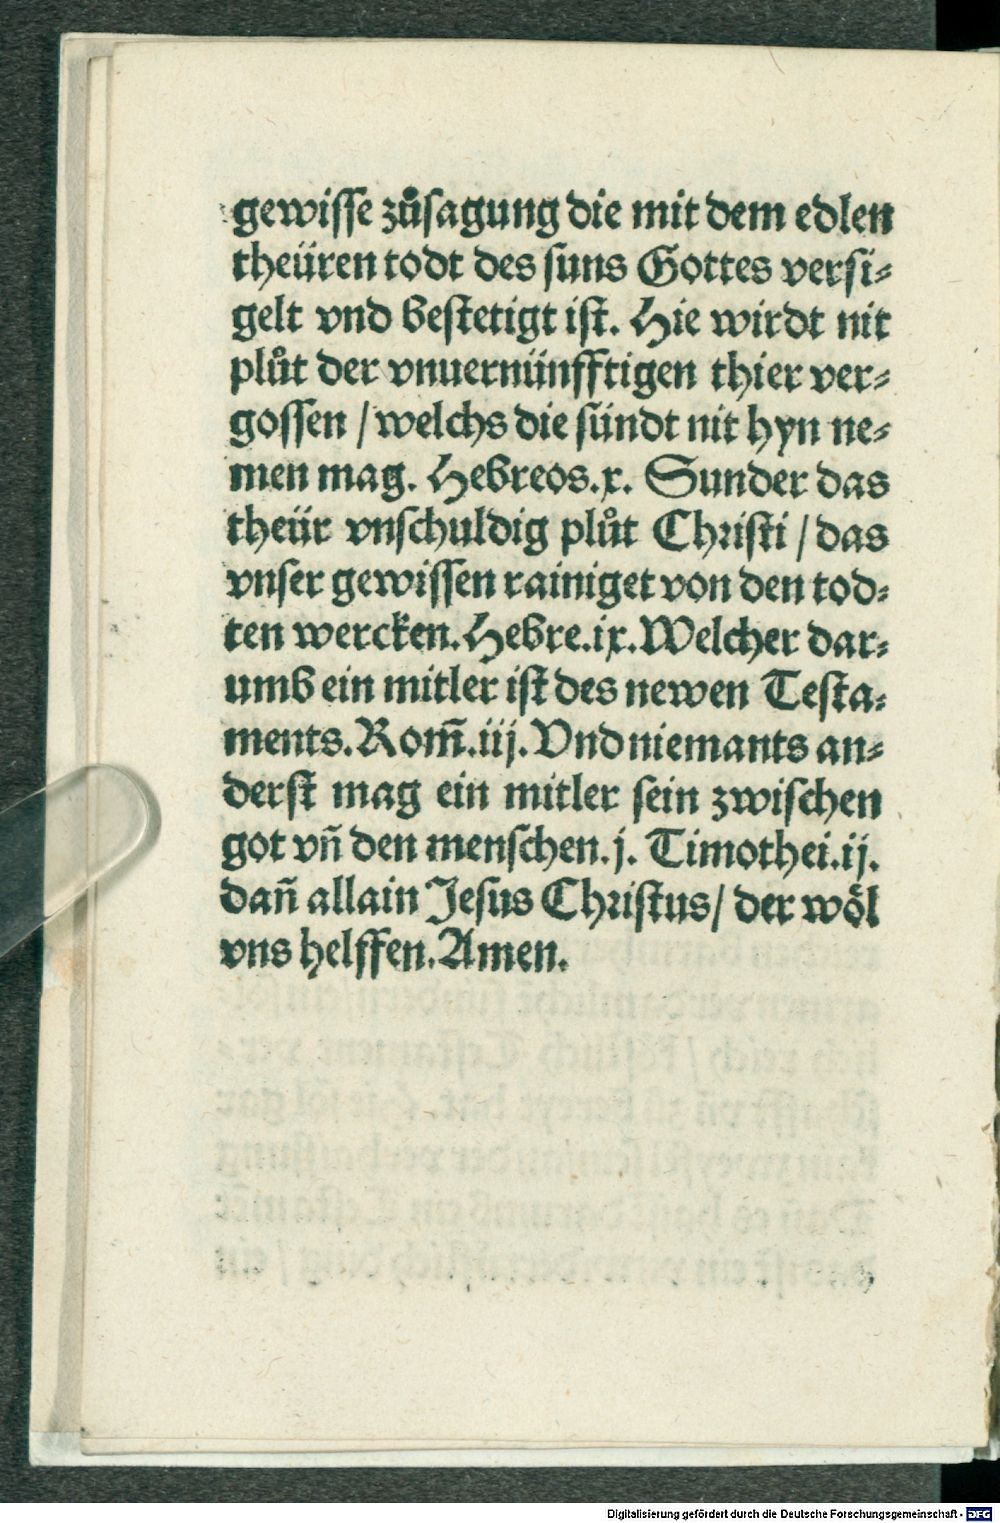 gewisse zůsagung die mit dem edlen
theüren todt des suns Gottes versi-
gelt vnd bestetigt ist. Hie wirdt nit
plůt der vnuernünfftigen thier ver-
gossen / welchs die sündt nit hyn ne-
men mag. Hebreos.x. Sunder das
theür vnschuldig plůt Christi / das
vnser gewissen rainiget von den tod-
ten wercken. Hebre.ix. Welcher dar-
umb ein mitler ist des newen Testa-
ments. Rom̃.iij. Vnd niemants an-
derst mag ein mitler sein zwischen
got vñ den menschen.j. Timothei.ij.
dañ allain Jesus Christus / der wöl
vns helffen. Amen.
Digitalisierung gefördert durch die Deutsche Forschungsgemeinschaft - DFG